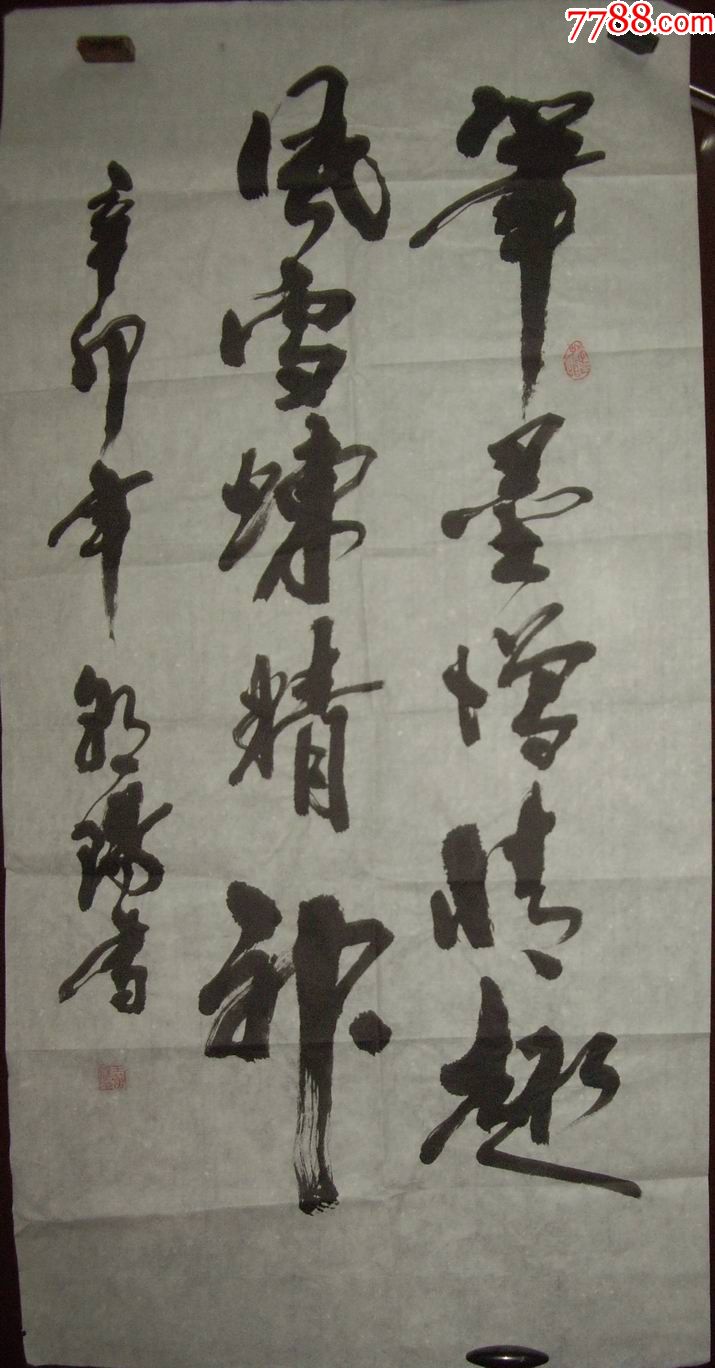 7788.com
筆墨增情趣
風雪煉精神
辛卯年 陽書